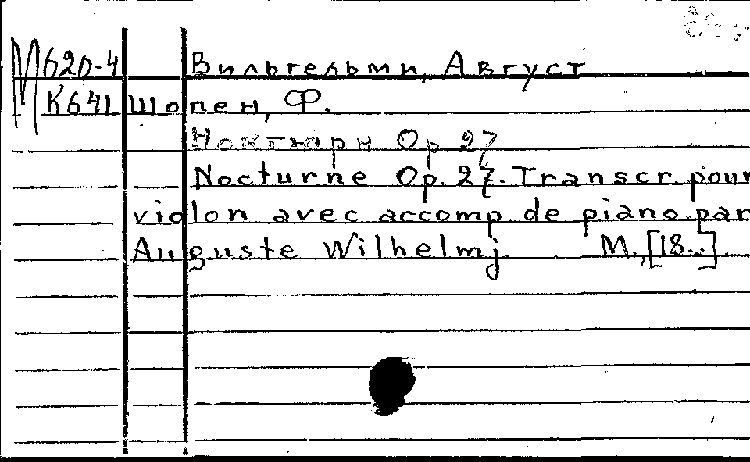 М620-4 Вильгельми, Август
К641 Шопен, Ф.
Ноктюрн Op. 27
Nocturne Op. 27. Transcr. pour
violon avec accomp. de piano par
Auguste Wilhelmj. М., [18..]